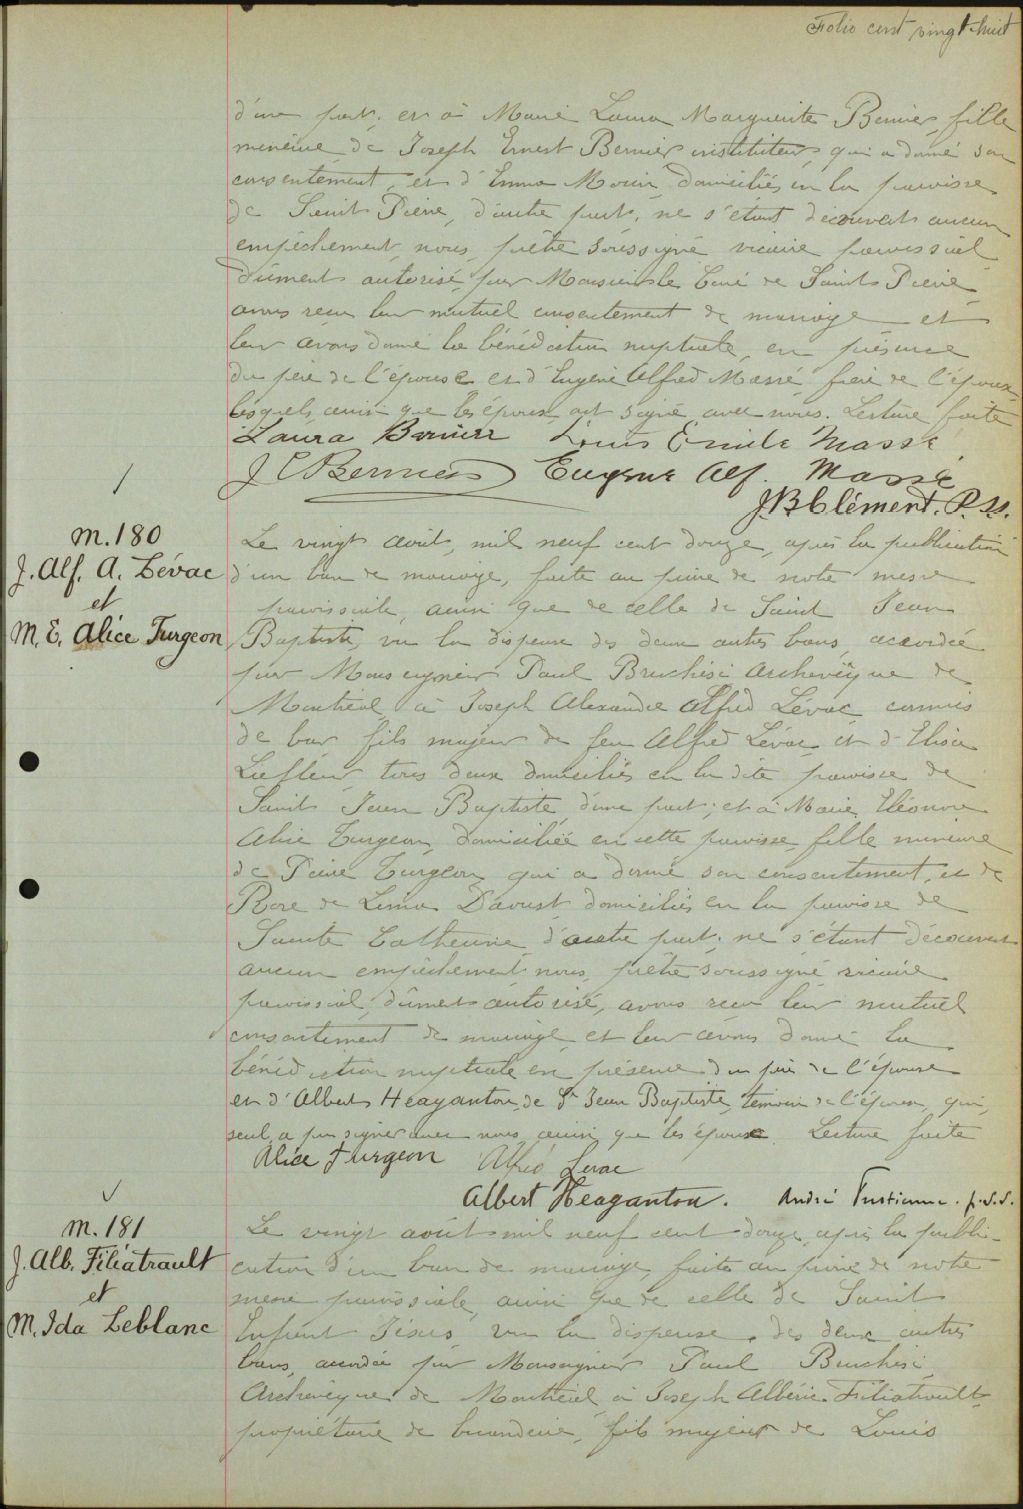 Folio cent vingt-huit
d'une part; et à Marie Laura Marguerite Bernier, fille
mineure de Joseph Ernest Bernier instituteur, qui a donné son
consentement, et d'Emma Morin domiciliés en la paroisse
de Saint Pierre, d'autre part; ne s'étant découvert aucun
empêchement, nous, prêtre soussigné vicaire paroissial
dûment autorisé par Monsieur le Curé de Saint Pierre
avons reçu leur mutuel consentement de mariage et
leur avons donné la bénédiction nuptiale, en présence
du père de l'épouse et d'Eugène Alfred Massé frère de l'époux,
lesquels, ainsi que les époux, ont signé avec nous. Lecture faite
Laura Bernier Louis Emile Massé
J E Bernier Eugène Alf. Massé
J.B. Clément. P.S.S.
m. 180
J. Alf. A. Lévac
et
M. E. Alice Turgeon
Le vingt août, mil neuf cent douze, après la publication
d'un ban de mariage, faite au prône de notre messe
paroissiale, ainsi que de celle de Saint Jean
Baptiste, vu la dispense des deux autres bans, accordée
par Monseigneur Paul Bruchési Archevêque de
Montréal, à Joseph Alexandre Alfred Lévac commis
de bar fils majeur de feu Alfred Lévac et d'Elisa
Lafleur tous deux domiciliés en la dite paroisse de
Saint Jean Baptiste, d'une part; et à Marie Eléonore
Alice Turgeon, domiciliée en cette paroisse, fille mineure
de Pierre Turgeon qui a donné son consentement, et de
Rose de Lima Davust domiciliés en la paroisse de
Sainte Catherine d'autre part; ne s'étant découvert
aucun empêchement nous, prêtre soussigné vicaire
paroissial, dûment autorisé, avons reçu leur mutuel
consentement de mariage et leur avons donné la
bénédiction nuptiale en présence du père de l'épouse
et d'Albert Heaganton, de St Jean Baptiste, témoin de l'époux, qui,
seul, a pu signer avec nous, ainsi que les époux. Lecture faite
Alice Turgeon Alfred Levac
Albert Heaganton. André p.s.s.
m. 181
J. Alb. Filiatrault
et
M. Ida Leblanc
Le vingt août mil neuf cent douze, après la publi-
cation d'un ban de mariage, faite au prône de notre
messe paroissiale, ainsi que de celle de Saint
Enfant Jésus, vu la dispense des deux autres
bans, accordée par Monseigneur Paul Bruchési
Archevêque de Montréal à Joseph Albéric Filiatrault
propriétaire de buanderie, fils majeur de Louis